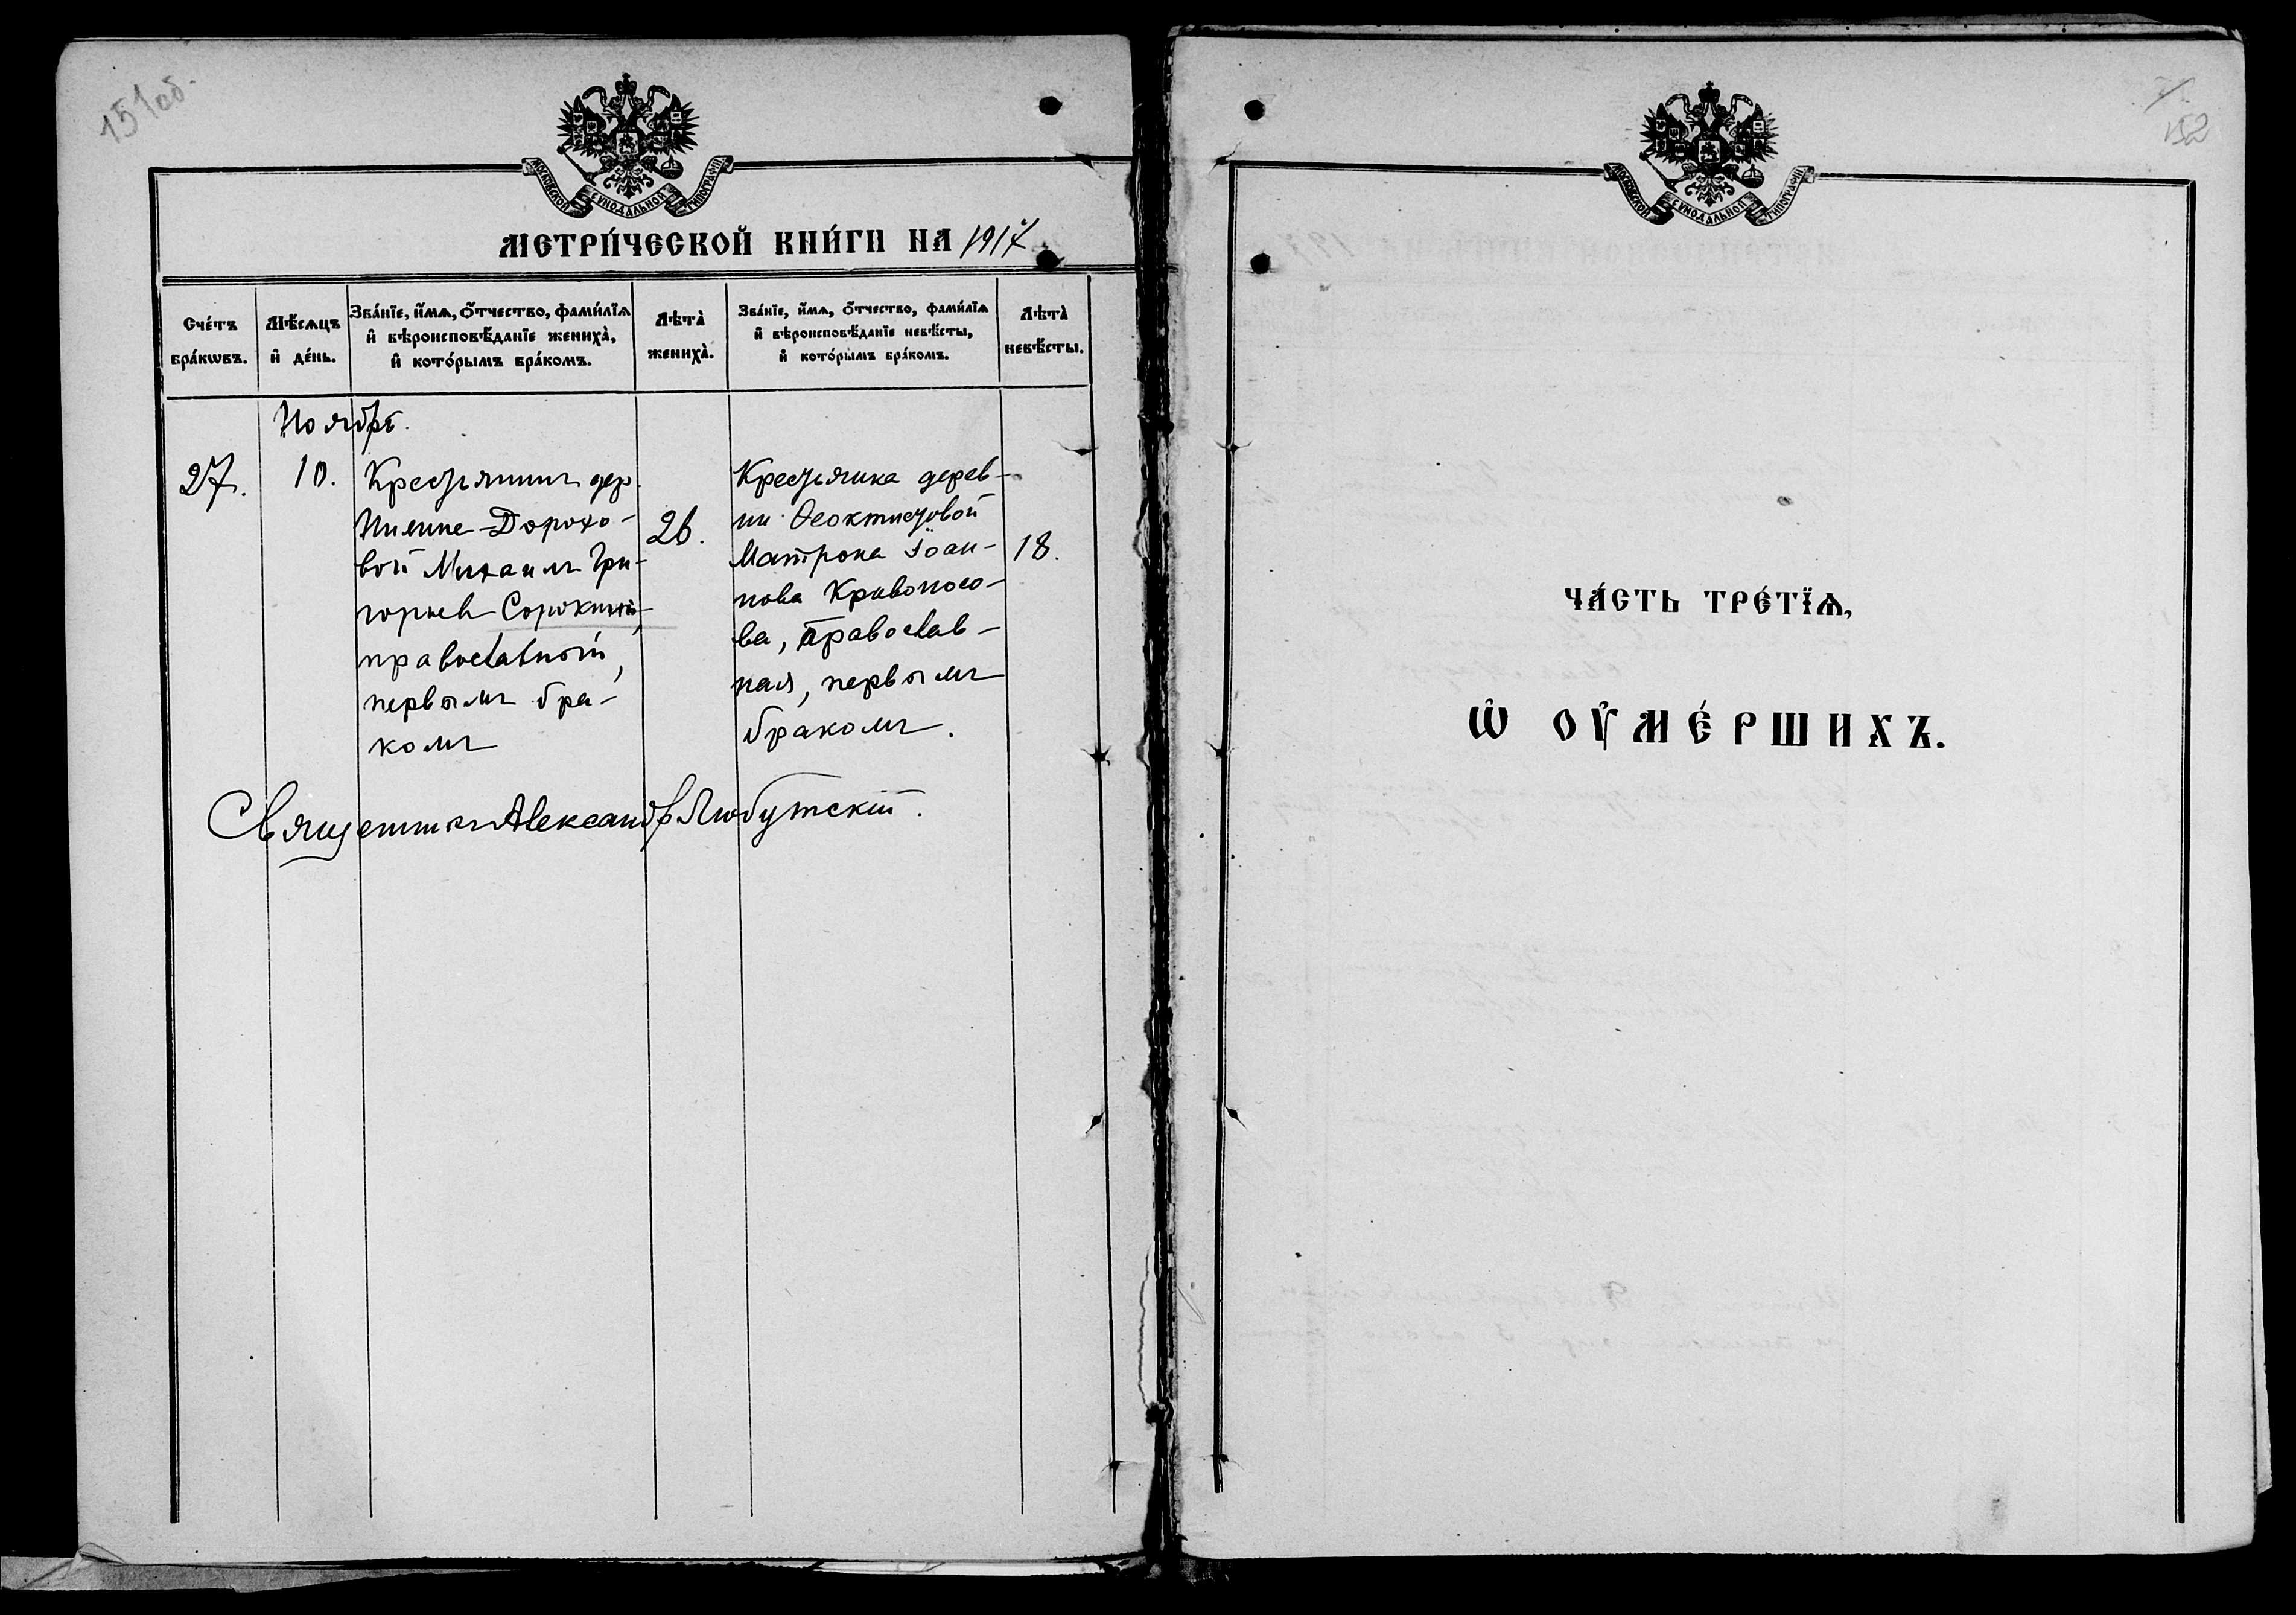 151об.
МОСКОВСКОЙ СѴНОДАЛЬНОЙ ТИПОГРАФІИ
МЕТРИ́ЧЕСКОЙ КНИ́ГИ НА 1917
Сче́тъ бра́кѡвъ.
Мѣ́сѧцъ и҆ де́нь.
Зва́нїе, и҆́мѧ, ѻ҆́тчество, фами́лїѧ и҆ вѣроисповѣ́данїе жениха̀, и҆ кото́рымъ бра́комъ.
Лѣта̀ жениха̀.
Зва́нїе, и҆́мѧ, ѻ҆́тчество, фами́лїѧ и҆ вѣроисповѣ́данїе невѣ́сты, и҆ кото́рымъ бра́комъ.
Лѣта̀ невѣ́сты.
Ноябрь.
27.
10.
Крестьянинъ дер.
Дорохо-
вой Михаилъ Гри-
горьевъ Сорокинъ,
православный,
первымъ бра-
комъ
26.
Крестьянка дерев-
ни Ѳеоктистовой
Матрона Іоан-
нова Кривоносо-
ва, православ-
ная, первымъ
бракомъ.
18.
Священникъ Александръ Любутскій.
152
МОСКОВСКОЙ СѴНОДАЛЬНОЙ ТИПОГРАФІИ
ЧА́СТЬ ТРЕ́ТЇѦ,
Ѡ҆ ОУ҆МЕ́РШИХЪ.